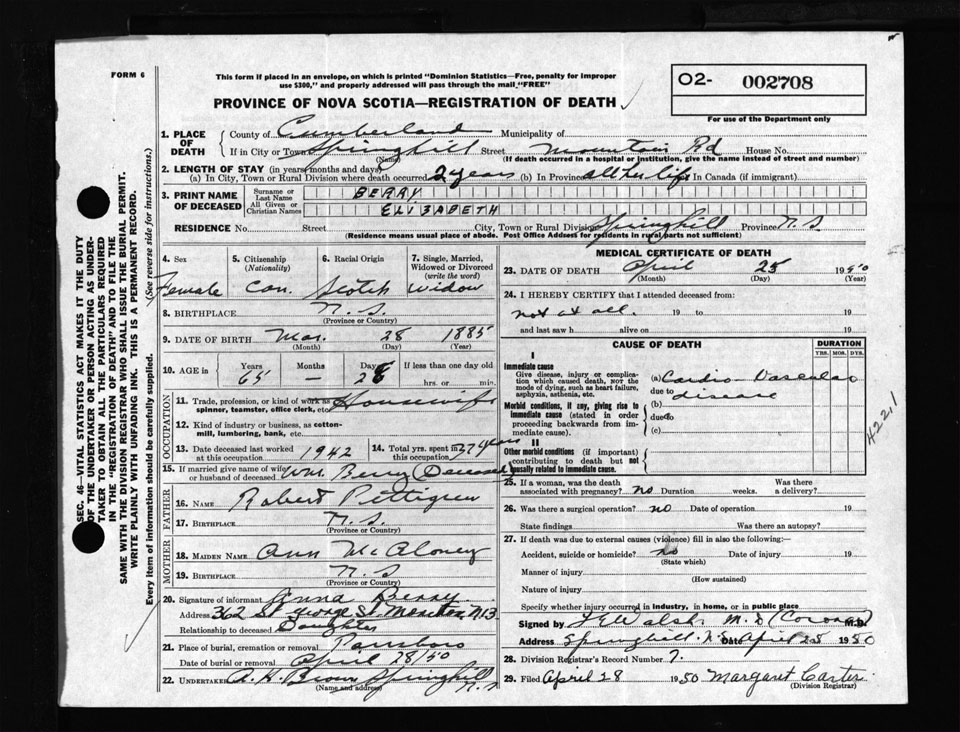 FORM 6
This form if placed in an envelope, on which is printed "Dominion Statistics—Free, penalty for improper
use $300," and properly addressed will pass through the mail "FREE"
PROVINCE OF NOVA SCOTIA—REGISTRATION OF DEATH
O2- 002708
For use of the Department only
1. PLACE OF DEATH
County of Cumberland Municipality of
If in City or Town Springhill Street Mountain Rd House No.
(Name) (If death occurred in a hospital or institution, give the name instead of street and number)
2. LENGTH OF STAY (in years months and days)
(a) In City, Town or Rural Division where death occurred 2 years (b) In Province all her life In Canada (if immigrant)
3. PRINT NAME OF DECEASED
Surname or Last Name BERRY
All Given or Christian Names ELIZABETH
RESIDENCE No. Street City, Town or Rural Division Springhill Province N.S
(Residence means usual place of abode. Post Office Address for residents in rural parts not sufficient)
4. Sex Female
5. Citizenship (Nationality) Can.
6. Racial Origin Scotch
7. Single, Married, Widowed or Divorced (write the word) Widow
8. BIRTHPLACE N.S.
(Province or Country)
9. DATE OF BIRTH Mar. 28 1885
(Month) (Day) (Year)
10. AGE in Years Months Days If less than one day old
65 — 28 hrs. or min.
OCCUPATION
11. Trade, profession or kind of work as spinner, teamster, office clerk, etc. Housewife
12. Kind of industry or business, as cotton-mill, lumbering, bank, etc.
13. Date deceased last worked at this occupation 1942
14. Total yrs. spent in this occupation 27 years
15. If married give name of wife or husband of deceased Wm Berry (Deceased)
FATHER
16. NAME Robert Pettigrew
17. BIRTHPLACE N.S.
(Province or Country)
MOTHER
18. MAIDEN NAME Ann McAloney
19. BIRTHPLACE N.S
(Province or Country)
20. Signature of informant Anna Berry
Address 362 St George St. Moncton N.B
Relationship to deceased Daughter
21. Place of burial, cremation or removal Parrsboro
Date of burial or removal April 28/50
22. UNDERTAKER A. H. Brown Springhill N.S
(Name and address)
MEDICAL CERTIFICATE OF DEATH
23. DATE OF DEATH April 25 1950
(Month) (Day) (Year)
24. I HEREBY CERTIFY that I attended deceased from:
not at all. 19 to 19
and last saw h alive on 19
CAUSE OF DEATH
DURATION
YRS. MOS. DYS.
I
Immediate cause
Give disease, injury or complication which caused death, NOT the mode of dying, such as heart failure, asphyxia, asthenia, etc.
(a) Cardio-Vascular
due to disease
Morbid conditions, if any, giving rise to immediate cause (stated in order proceeding backwards from immediate cause).
(b)
due to
(c)
II
Other morbid conditions (if important) contributing to death but not causally related to immediate cause.
422.1
25. If a woman, was the death associated with pregnancy? no Duration weeks. Was there a delivery?
26. Was there a surgical operation? no Date of operation 19
State findings Was there an autopsy?
27. If death was due to external causes (violence) fill in also the following:—
Accident, suicide or homicide? no Date of injury 19
(State which)
Manner of injury
(How sustained)
Nature of injury
Specify whether injury occurred in industry, in home, or in public place
Signed by Walsh M.D (Coroner) M.D.
Address Springhill N.S Date April 28 1950
28. Division Registrar's Record Number 7.
29. Filed April 28 1950 Margaret Carter
(Division Registrar)
SEC. 46—VITAL STATISTICS ACT MAKES IT THE DUTY
OF THE UNDERTAKER OR PERSON ACTING AS UNDER-
TAKER TO OBTAIN ALL THE PARTICULARS REQUIRED
IN THE "REGISTRATION OF DEATH" AND TO FILE THE
SAME WITH THE DIVISION REGISTRAR WHO SHALL ISSUE THE BURIAL PERMIT.
WRITE PLAINLY WITH UNFADING INK. THIS IS A PERMANENT RECORD.
Every item of information should be carefully supplied. (See reverse side for instructions.)